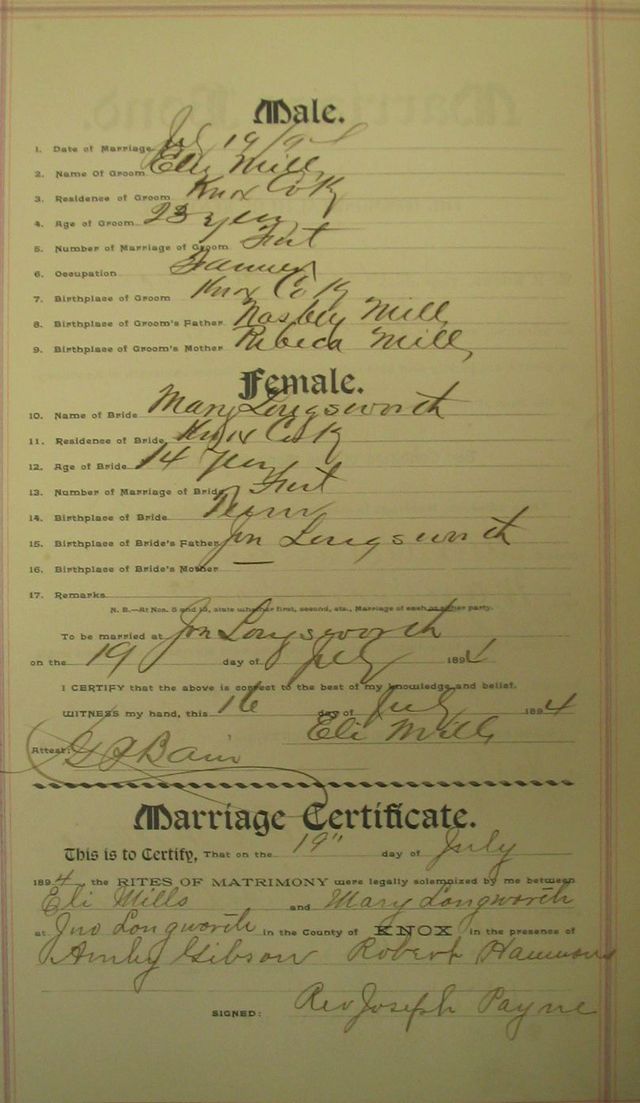 Male.
1. Date of Marriage July 19/94
2. Name Of Groom Eli Mills
3. Residence of Groom Knox Co Ky
4. Age of Groom 23 years
5. Number of Marriage of Groom First
6. Occupation Farmer
7. Birthplace of Groom Knox Co Ky
8. Birthplace of Groom's Father Mills
9. Birthplace of Groom's Mother Rebeca Mills
Female.
10. Name of Bride Mary Longsworth
11. Residence of Bride Knox Co Ky
12. Age of Bride 14 years
13. Number of Marriage of Bride First
14. Birthplace of Bride Tenn
15. Birthplace of Bride's Father Jno Longsworth
16. Birthplace of Bride's Mother —
17. Remarks
N. B.—At Nos. 5 and 13, state whether first, second, etc., Marriage of each or either party.
To be married at Jno Longsworth
on the 19 day of July 1894
I CERTIFY that the above is correct to the best of my knowledge and belief.
WITNESS my hand, this 16 day of July 1894
Eli Mills
Attest:
Marriage Certificate.
This is to Certify, That on the 19" day of July
1894 the RITES OF MATRIMONY were legally solemnized by me between
Eli Mills and Mary Longworth
at Jno Longworth in the County of KNOX in the presence of
Gibson Robert Hammons
SIGNED: Rev Joseph Payne